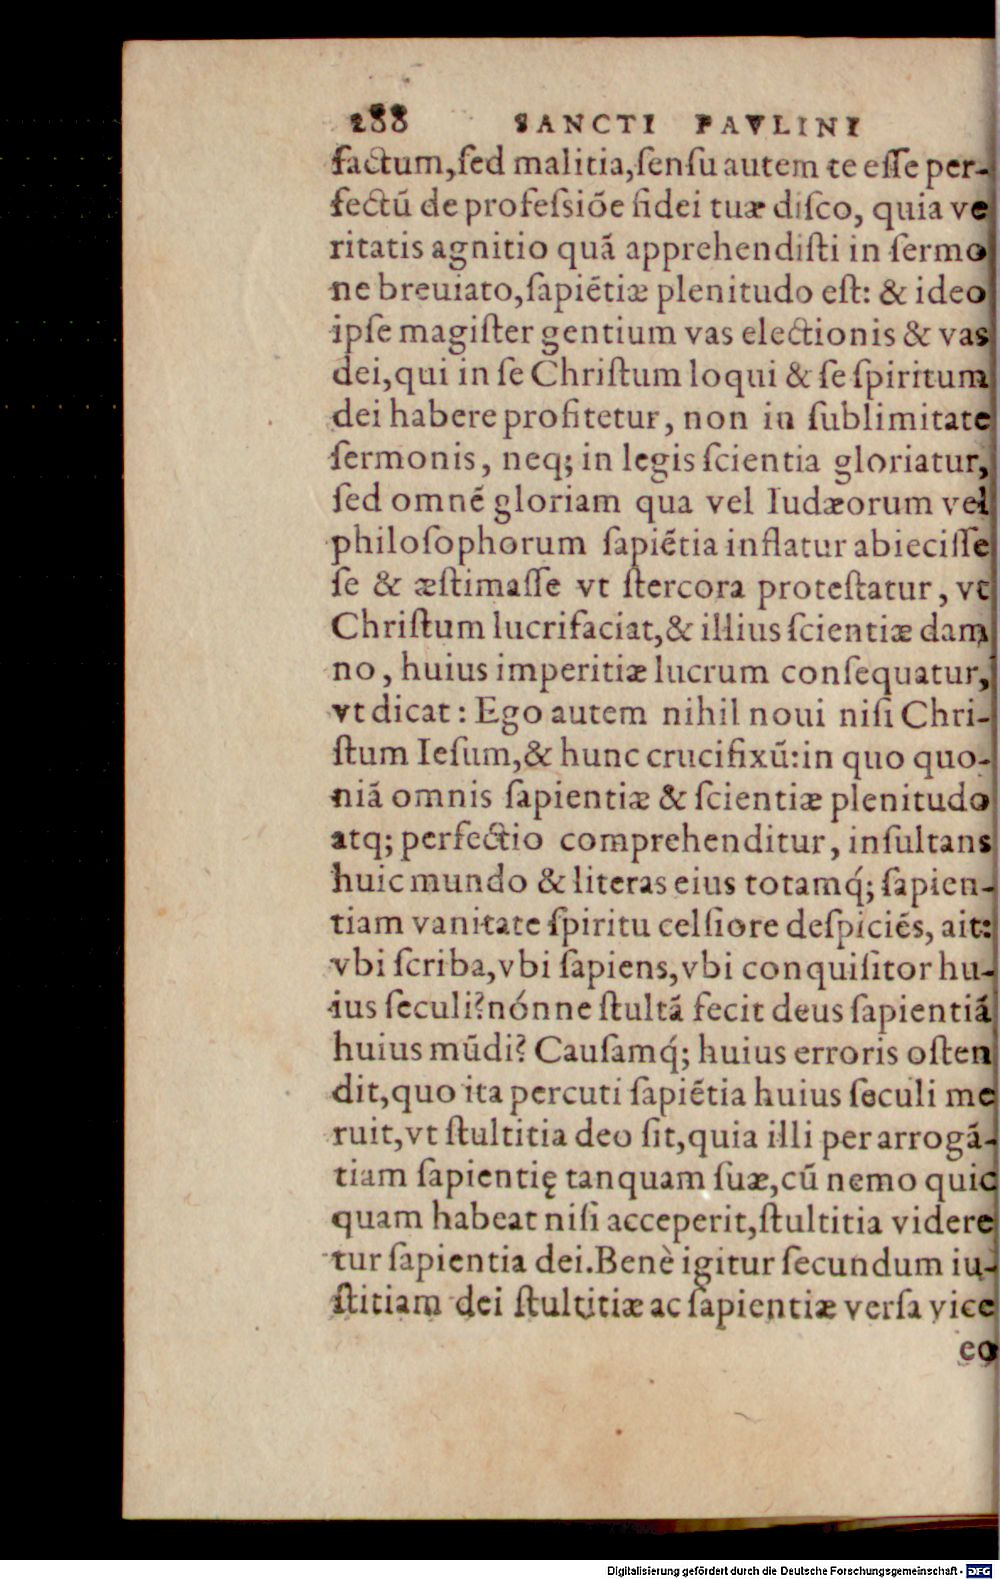 288 SANCTI PAVLINI
factum, ſed malitia, ſenſu autem te eſſe per-
fectū de profeſsiōe fidei tuæ diſco, quia ve
ritatis agnitio quā apprehendiſti in ſermo
ne breuiato, ſapiētiæ plenitudo eſt: & ideo
ipſe magiſter gentium vas electionis & vas
dei, qui in ſe Chriſtum loqui & ſe ſpiritum
dei habere profitetur, non in ſublimitate
ſermonis, neq; in legis ſcientia gloriatur,
ſed omnē gloriam qua vel Iudæorum vel
philoſophorum ſapiētia inflatur abieciſſe
ſe & æſtimaſſe vt ſtercora proteſtatur, vt
Chriſtum lucrifaciat, & illius ſcientiæ dam
no, huius imperitiæ lucrum conſequatur,
vt dicat: Ego autem nihil noui niſi Chri-
ſtum Ieſum, & hunc crucifixū: in quo quo-
niā omnis ſapientiæ & ſcientiæ plenitudo
atq; perfectio comprehenditur, inſultans
huic mundo & literas eius totamq́; ſapien-
tiam vanitate ſpiritu celſiore deſpiciēs, ait:
vbi ſcriba, vbi ſapiens, vbi conquiſitor hu-
ius ſeculi? nónne ſtultā fecit deus ſapientiā
huius mūdi? Cauſamq́; huius erroris oſten
dit, quo ita percuti ſapiētia huius ſeculi me
ruit, vt ſtultitia deo ſit, quia illi per arrogā-
tiam ſapientię tanquam ſuæ, cū nemo quic
quam habeat niſi acceperit, ſtultitia videre
tur ſapientia dei. Benè igitur ſecundum iu-
ſtitiam dei ſtultitiæ ac ſapientiæ verſa vice
eo
Digitalisierung gefördert durch die Deutsche Forschungsgemeinschaft - DFG